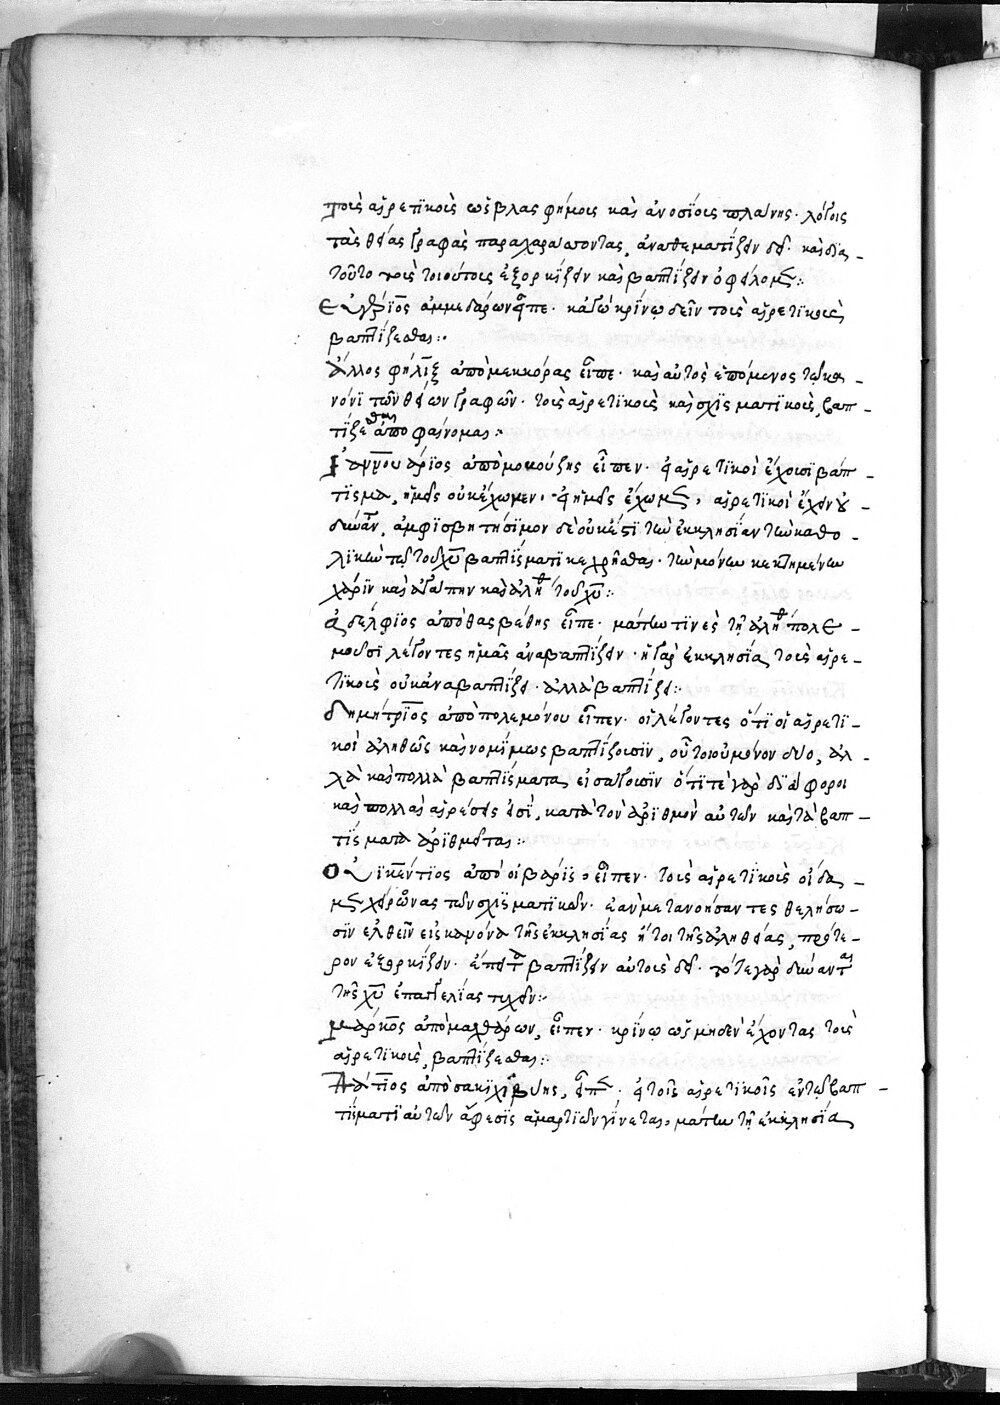 τοῖς αἱρετικοῖς ὡς βλασφήμοις καὶ ἀνοσίοις πλάνης· λόγοις
τὰς θείας γραφὰς παραχαράττοντας, ἀναθεματίζειν δεῖ· καὶ διὰ
τοῦτο τοὺς τοιούτους ἐξορκίζειν καὶ βαπτίζειν ὀφείλομεν:
ἀμμεδάρων εἶπε· κἀγὼ κρίνω δεῖν τοὺς αἱρετικοὺς
βαπτίζεσθαι:
ἄλλος φήλιξ ἀπὸ μεκκόρας εἶπε· καὶ αὐτὸς ἑπόμενος τῷ κα
νόνι τῶν θείων γραφῶν· τοὺς αἱρετικοὺς καὶ σχισματικοὺς βαπ
τίζεσθαι ἀποφαίνομαι:
ἰαννουάριος ἀπὸ μουκούζης εἶπεν· εἰ αἱρετικοὶ ἔχουσι βάπ
τισμα, ἡμεῖς οὐκ ἔχωμεν· εἰ ἡμεῖς ἔχωμεν, αἱρετικοὶ ἔχειν οὐ
δύνανται, ἀμφισβητήσιμον δὲ οὐκ ἔστι τὴν ἐκκλησίαν τὴν καθο
λικὴν τῷ τοῦ χυ βαπτίσματι κεχρῆσθαι· τὴν μόνην κεκτημένην
χάριν καὶ ἀγάπην καὶ ἀλήθ τοῦ χυ:
ἀδέλφιος ἀπὸ θασβέθης εἶπε· μάτην τινὲς τῇ ἀληθ πολε
μοῦσι λέγοντες ἡμᾶς ἀναβαπτίζειν· ἡ γὰρ ἐκκλησία, τοὺς αἱρε
τικοὺς οὐκ ἀναβαπτίζει· ἀλλὰ βαπτίζει:
δημήτριος ἀπὸ πολεμόνου εἶπεν· οἱ λέγοντες ὅτι οἱ αἱρετι
κοὶ ἀληθῶς καὶ νομίμως βαπτίζουσιν, οὗτοι οὐ μόνον δύο, ἀλ
λὰ καὶ πολλὰ βαπτίσματα εἰσάγουσιν ὅτι τε γὰρ διάφοροι
καὶ πολλαὶ αἱρέσεις εἰσί, κατὰ τὸν ἀριθμὸν αὐτῶν καὶ τὰ βαπ
τίσματα ἀριθμεῖται:
ἀπὸ εἶπεν· τοὺς αἱρετικοὺς οἴδα
μεν χείρωνας τῶν σχισματικῶν· ἐὰν μετανοήσαντες θελήσω
σιν ἐλθεῖν εἰς κανόνα τῆς ἐκκλησίας ἤτοι τῆς ἀληθείας, πρότε
ρον ἐξορκίζειν· ἔπειτα βαπτίζειν αὐτοὺς δεῖ· τότε γὰρ δύνανται
τῆς χυ ἐπαγγελίας τυχεῖν:
μάρκος ἀπὸ μακθάρων, εἶπεν· κρίνω ὡς μηδὲν ἔχοντας τοὺς
αἱρετικοὺς, βαπτίζεσθαι:
ἀπὸ εἶπεν· εἰ τοῖς αἱρετικοῖς ἐν τῷ βαπ
τίσματι αὐτῶν ἄφεσις ἁμαρτιῶν γίνεται, μάτην τῇ ἐκκλησίᾳ